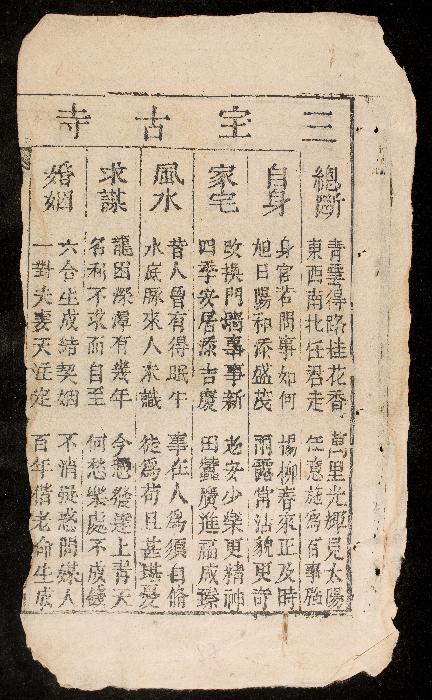 三宝古寺
總斷
青雲得路桂花香 萬里光輝見太陽
東西南北任君走 任意施為百事強
自身
身宮若問事如何 楊柳春來正及時
旭日陽和添盛茂 雨露常沾貌更奇
家宅
改換門牆事事新 老安少樂更精神
四季安居添吉慶 田蠶廣進福咸臻
風水
昔人曾有得眠牛 事在人為須自脩
水底脉來人未識 徒為苟且甚堪憂
求謀
龍困深潭有幾年 今想發達上青天
名利不求而自至 何愁樂處不成錢
婚姻
六合生成結契姻 不消疑惑問媒人
一對夫妻天注定 百年偕老命生成